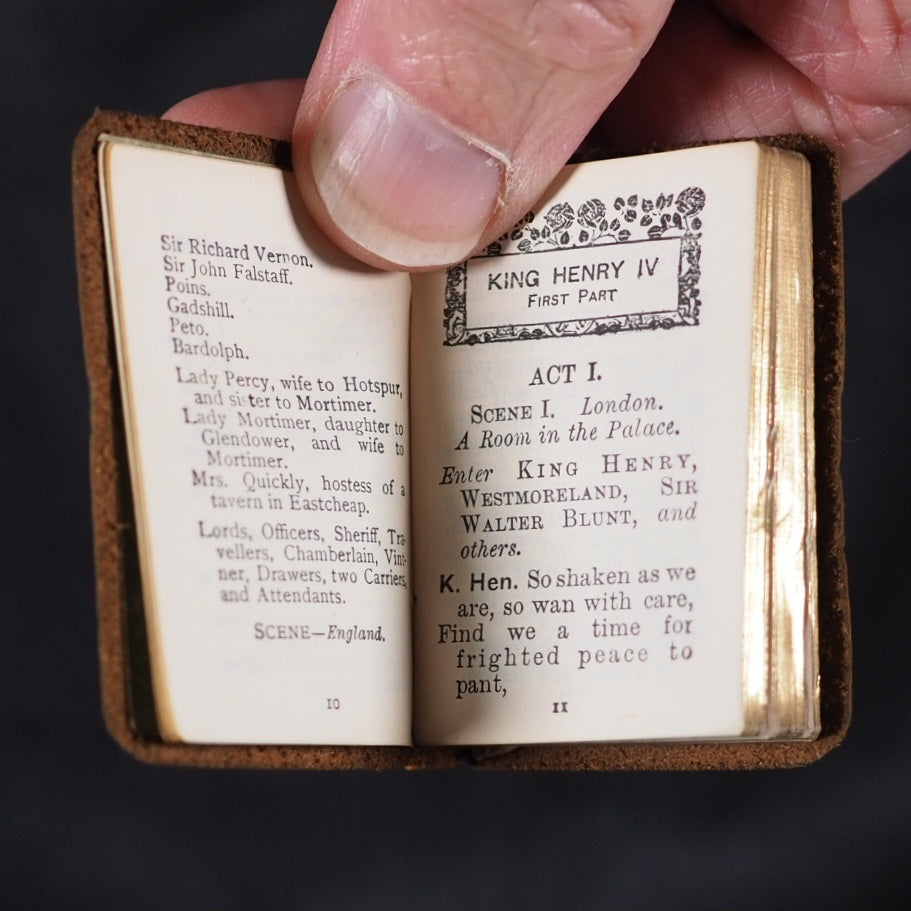 Sir Richard Vernon.
Sir John Falstaff.
Poins.
Gadshill.
Peto.
Bardolph.
Lady Percy, wife to Hotspur,
and sister to Mortimer.
Lady Mortimer, daughter to
Glendower, and wife to
Mortimer.
Mrs. Quickly, hostess of a
tavern in Eastcheap.
Lords, Officers, Sheriff, Tra-
vellers, Chamberlain, Vint-
ner, Drawers, two Carriers,
and Attendants.
SCENE—England.
10
KING HENRY IV
FIRST PART
ACT I.
SCENE I. London.
A Room in the Palace.
Enter KING HENRY,
WESTMORELAND, SIR
WALTER BLUNT, and
others.
K. Hen. So shaken as we
are, so wan with care,
Find we a time for
frighted peace to
pant,
11